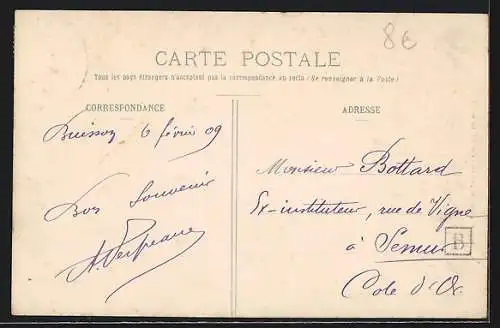 8€
CARTE POSTALE
Tous les pays étrangers n'acceptent pas la correspondance au recto (Se renseigner à la Poste)
CORRESPONDANCE
ADRESSE
Buisson 6 février 09
Bon Souvenir
Monsieur Bottard
Ex-instituteur, rue de Vigne
à Semur
B
Côte d'Or